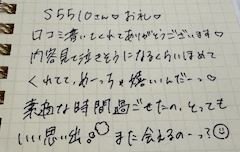 S5510さん♡お礼♡
口コミ書いてくれてありがとうございます♡
内容見て泣きそうになるくらいほめて
くれてて、めーっちゃ嬉しいんだーっ♡
素敵な時間過ごせたの、とっても
いい思い出。また会えるの〜っ?